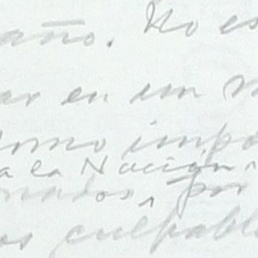 año. No es
ar en un m
como impo
a la Nación
nados, por
os culpabl